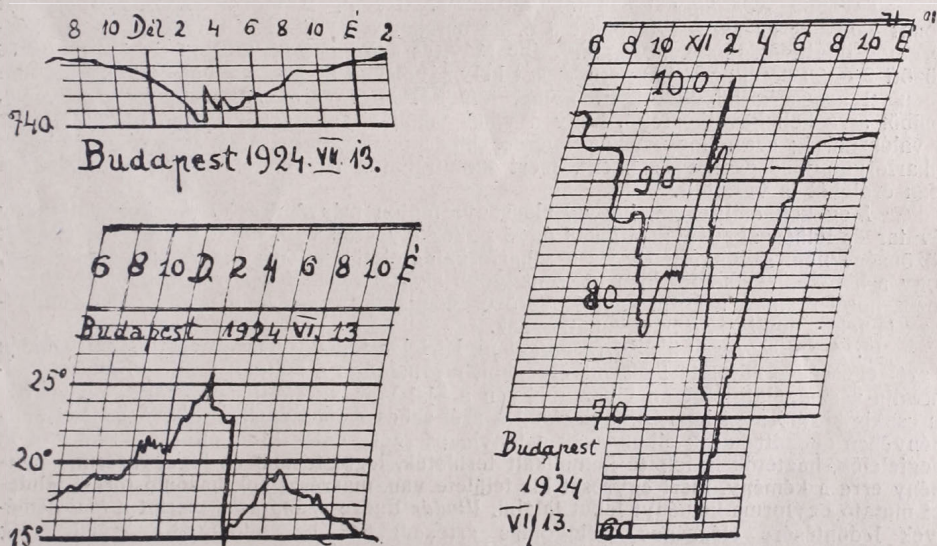 8 10 Dél 2 4 6 8 10 É 2
740
Budapest 1924. VII. 13.
6 8 10 D. 2 4 6 8 10 É
Budapest 1924 VI. 13
25°
20°
15°
6 8 10 XII 2 4 6 8 10 É
100
90
80
70
Budapest
1924
VII. 13.
60